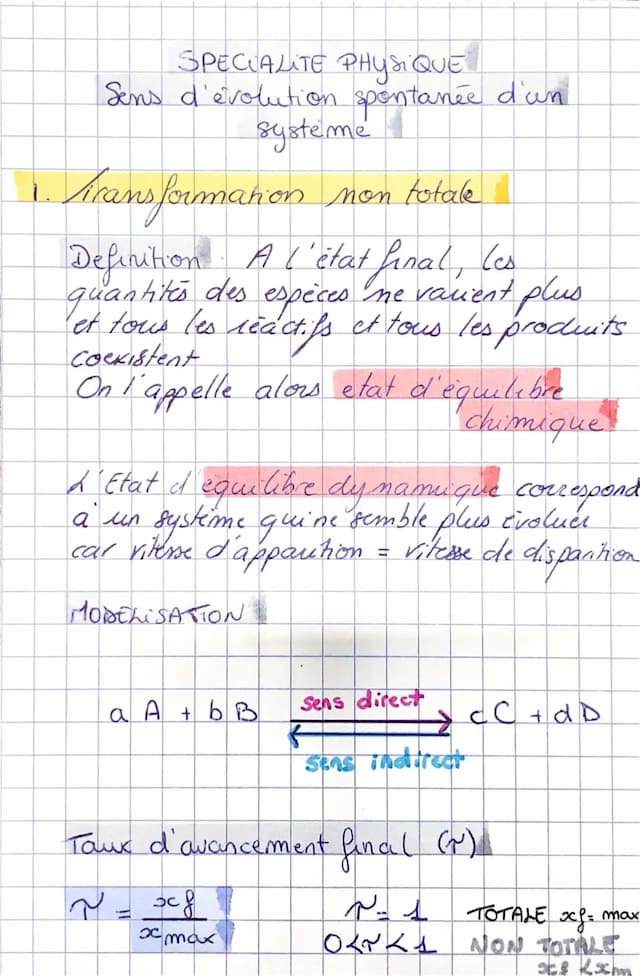 SPECIALITE PHYSIQUE
Sens d'évolution spontanée d'un
système
1. Transformation non totale
Definition A l'état final, les
quantités des espèces ne varient plus
et tous les réactifs et tous les produits
coexistent
On l'appelle alors etat d'équilibre
chimique
L'Etat d'équilibre dynamique correspond
à un système qui ne semble plus évoluer
car vitesse d'apparition = vitesse de disparition
MODELISATION
sens direct
a A + b B cC + dD
sens indirect
Taux d'avancement final (τ)
τ = xf / xmax τ = 1 TOTALE xf = max
0 < τ < 1 NON TOTALE
xf < xm